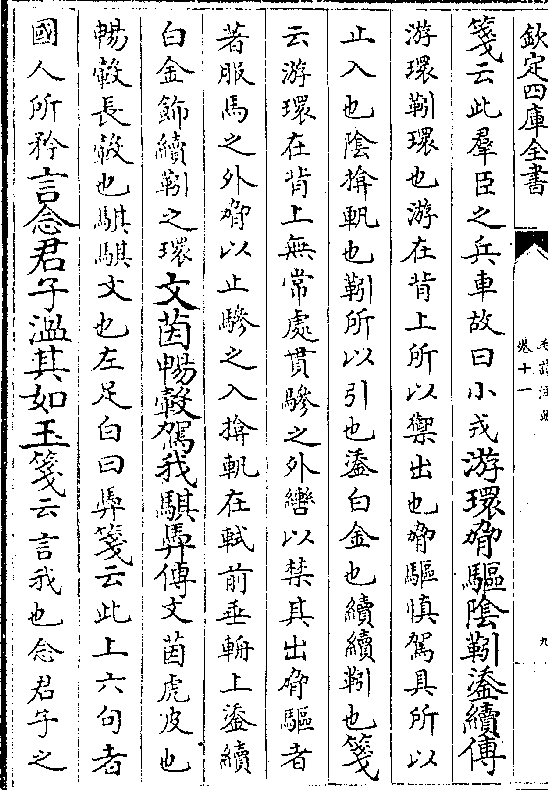 欽定四庫全書
毛詩注疏
卷十一
九
箋云此羣臣之兵車故曰小戎游環脅驅陰靷鋈續傳
游環靷環也游在背上所以禦出也脅驅慎駕具所以
止入也陰揜軓也靷所以引也鋈白金也續續靷也箋
云游環在背上無常處貫驂之外轡以禁其出脅驅者
著服馬之外脅以止驂之入揜軓在軾前垂輈上鋈續
白金飾續靷之環文茵暢轂駕我騏馵傳文茵虎皮也
暢轂長轂也騏騏文也左足白曰馵箋云此上六句者
國人所矜言念君子溫其如玉箋云言我也念君子之